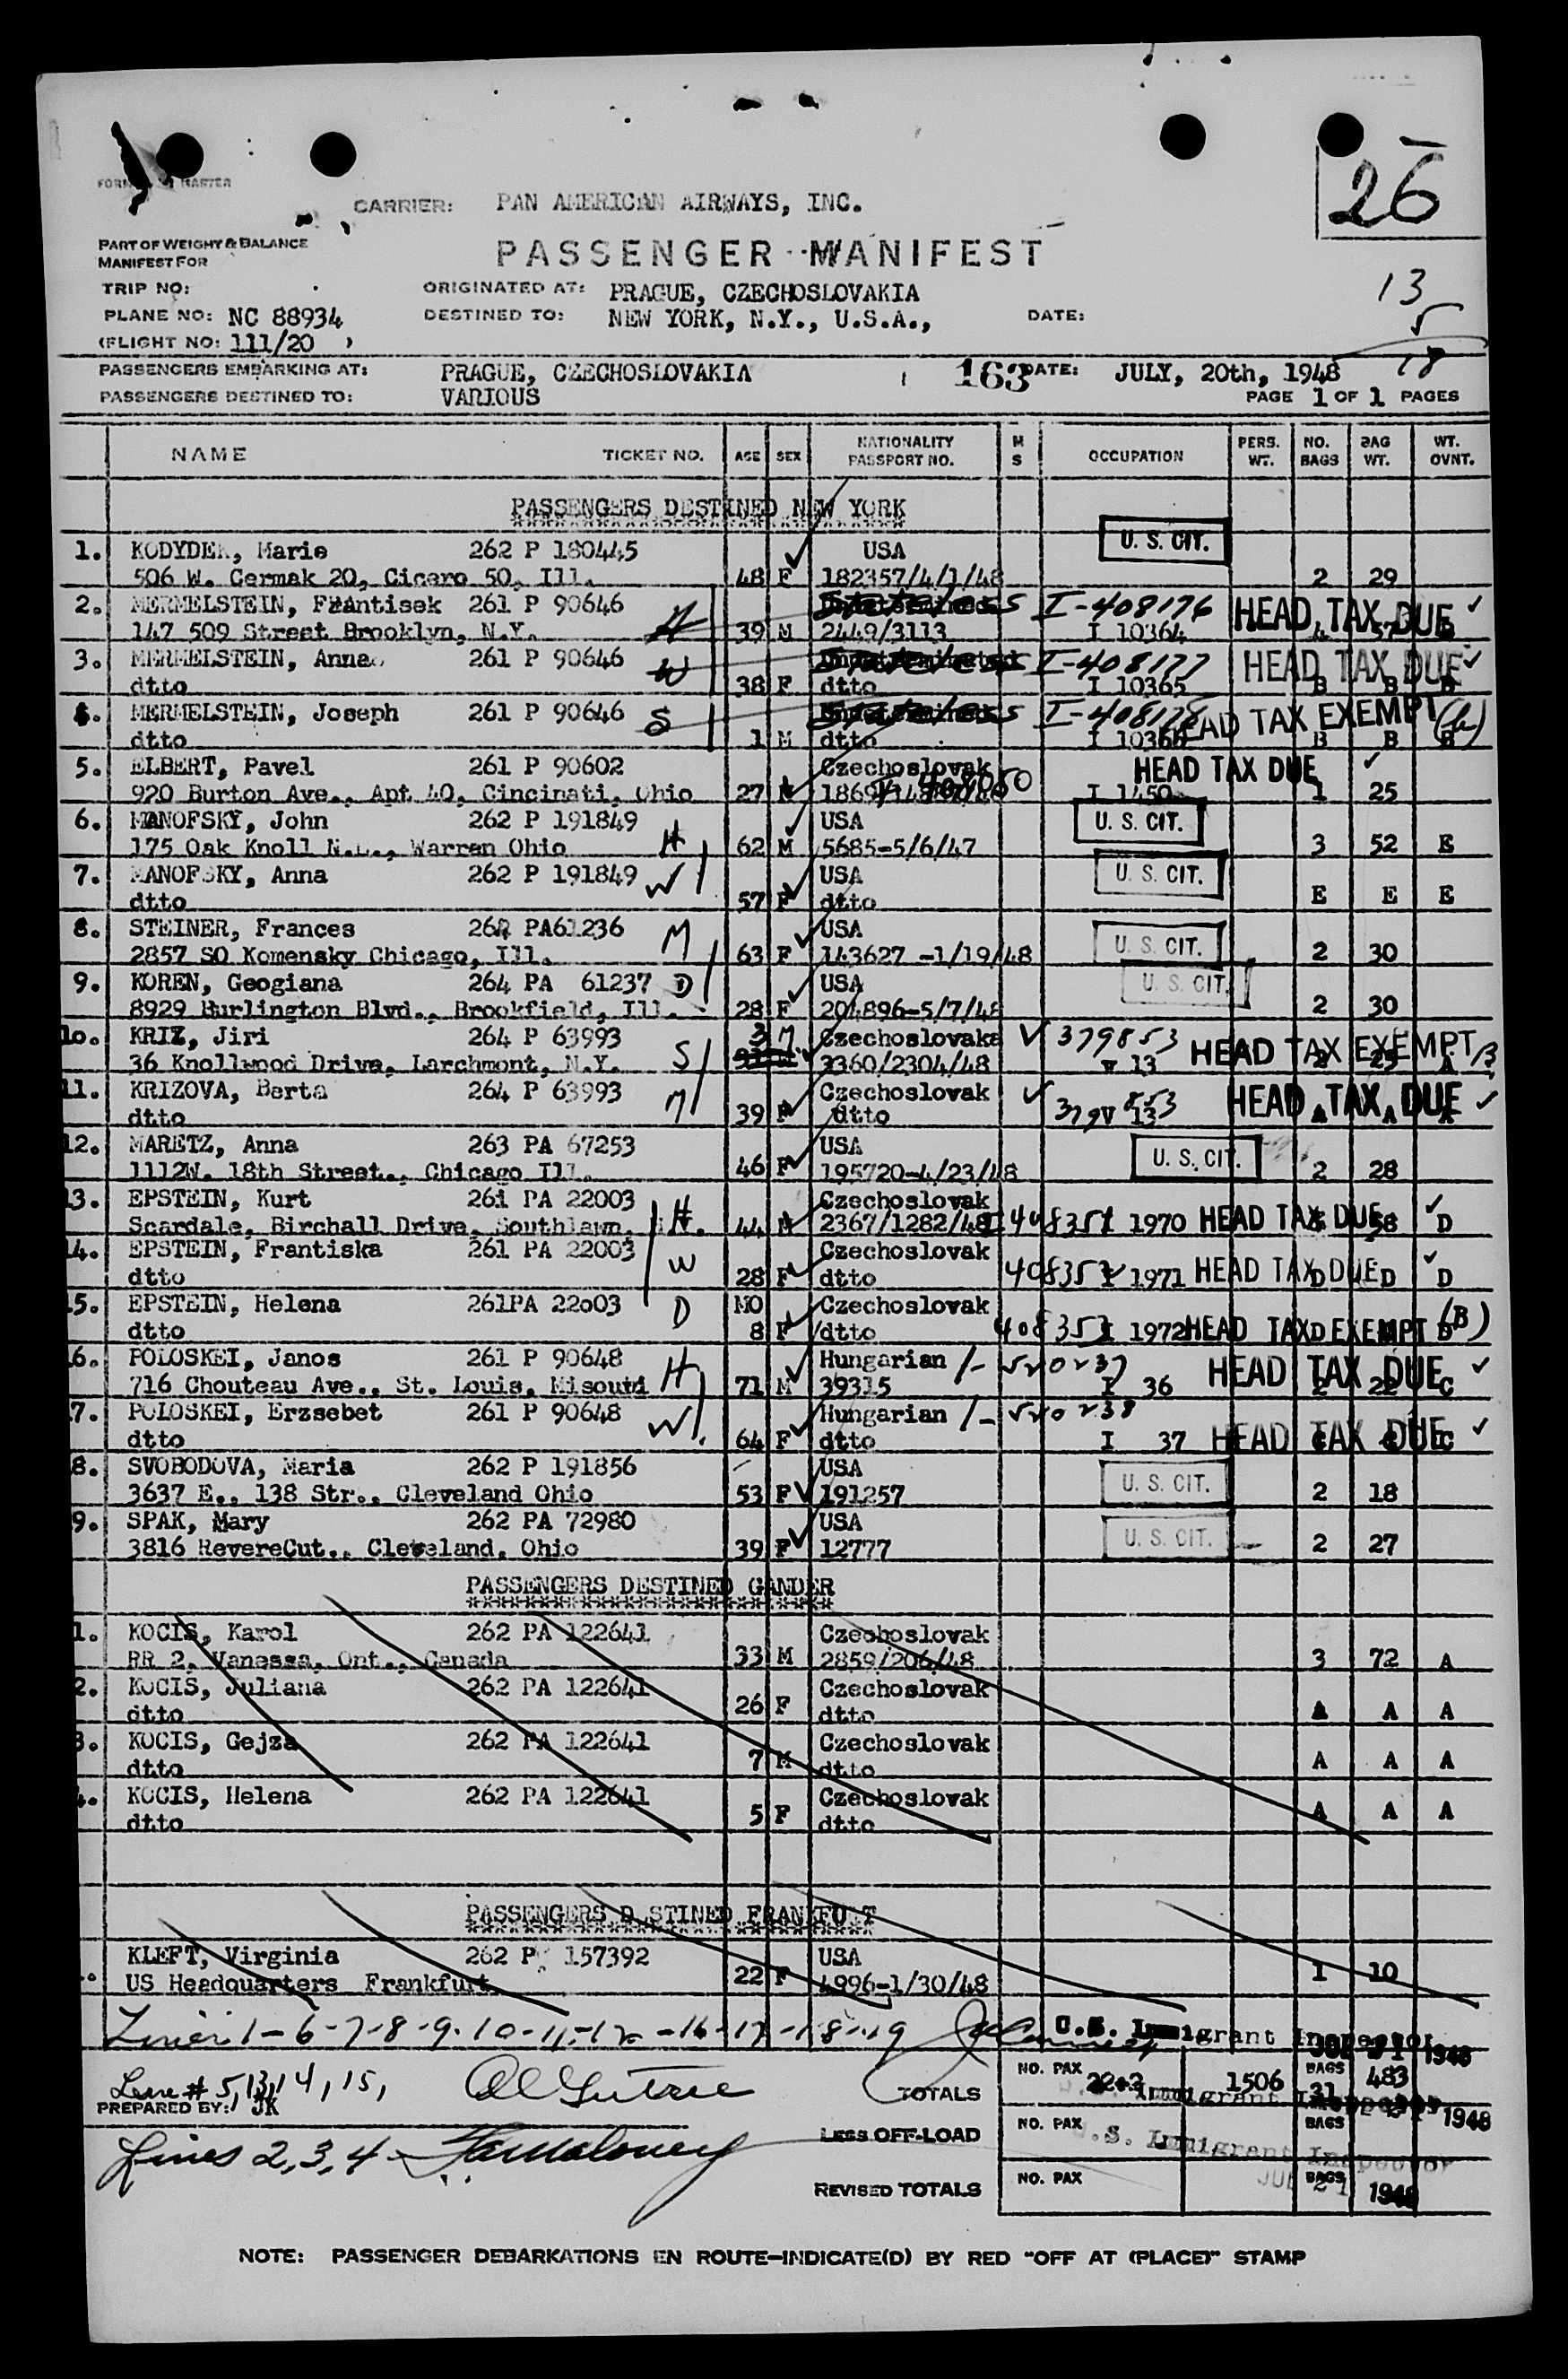 26
CARRIER: PAN AMERICAN AIRWAYS, INC.
PART OF WEIGHT & BALANCE
MANIFEST FOR
PASSENGER MANIFEST
TRIP NO:
ORIGINATED AT: PRAGUE, CZECHOSLOVAKIA
13
PLANE NO: NC 88934
DESTINED TO: NEW YORK, N.Y., U.S.A., DATE:
5
(FLIGHT NO: 111/20 )
18
PASSENGERS EMBARKING AT: PRAGUE, CZECHOSLOVAKIA 163 DATE: JULY, 20th, 1948
PASSENGERS DESTINED TO: VARIOUS PAGE 1 OF 1 PAGES
NAME TICKET NO. AGE SEX NATIONALITY PASSPORT NO. M S OCCUPATION PERS. WT. NO. BAGS BAG WT. WT. OVNT.
PASSENGERS DESTINED NEW YORK
1. KODYDEK, Marie 262 P 180445 USA U. S. CIT.
506 W. Cermak 20, Cicero 50, Ill. 48 F 182357/4/1/48 2 29
2. MERMELSTEIN, Frantisek 261 P 90646 Stateless I-408176 HEAD TAX DUE
147 509 Street Brooklyn, N.Y. H 39 M 2449/3113 I 10364
3. MERMELSTEIN, Anna 261 P 90646 W Stateless I-408177 HEAD TAX DUE
dtto 38 F dtto I 10365 B B B
4. MERMELSTEIN, Joseph 261 P 90646 S Stateless I-408178 HEAD TAX EXEMPT (b)
dtto 1 M dtto I 10366 B B B
5. ELBERT, Pavel 261 P 90602 Czechoslovak HEAD TAX DUE
920 Burton Ave., Apt 40, Cincinati, Ohio 27 M I 1450 1 25
6. MANOFSKY, John 262 P 191849 USA U. S. CIT.
175 Oak Knoll N.E., Warren Ohio H 62 M 5685-5/6/47 3 52 E
7. MANOFSKY, Anna 262 P 191849 W USA U. S. CIT.
dtto 57 F dtto E E E
8. STEINER, Frances 264 PA61236 M USA U. S. CIT.
2857 SO Komensky Chicago, Ill. 63 F 143627 -1/19/48 2 30
9. KOREN, Geogiana 264 PA 61237 D USA U. S. CIT.
8929 Burlington Blvd., Brookfield, Ill. 28 F 204896-5/7/48 2 30
10. KRIZ, Jiri 264 P 63993 3 M Czechoslovak 379853 HEAD TAX EXEMPT
36 Knollwood Drive, Larchmont, N.Y. S 3360/2304/48 V 13 2 25 A B
11. KRIZOVA, Berta 264 P 63993 M Czechoslovak 379853 HEAD TAX DUE
dtto 39 F dtto V 13 A A A
12. MARETZ, Anna 263 PA 67253 USA U. S. CIT.
1112W. 18th Street., Chicago Ill. 46 F 195720-4/23/48 2 28
13. EPSTEIN, Kurt 261 PA 22003 H Czechoslovak
Scardale, Birchall Drive, Southlawn, 44 M 2367/1282/48 I 408351 1970 HEAD TAX DUE 58 D
14. EPSTEIN, Frantiska 261 PA 22003 W Czechoslovak
dtto 28 F dtto 408352 I 1971 HEAD TAX DUE D D D
15. EPSTEIN, Helena 261PA 22003 D MO Czechoslovak (B)
dtto 8 F dtto 408353 I 1972 HEAD TAX EXEMPT D D
16. POLOSKEI, Janos 261 P 90648 H Hungarian I-520237 HEAD TAX DUE
716 Chouteau Ave., St. Louis, Misouri 71 M 39315 I 36 C
17. POLOSKEI, Erzsebet 261 P 90648 W Hungarian I-520238 HEAD TAX DUE
dtto 64 F dtto I 37 C C C
18. SVOBODOVA, Maria 262 P 191856 USA U. S. CIT.
3637 E., 138 Str., Cleveland Ohio 53 F 191257 2 18
19. SPAK, Mary 262 PA 72980 USA U. S. CIT.
3816 RevereCut., Cleveland, Ohio 39 F 12777 2 27
PASSENGERS DESTINED GANDER
1. KOCIS, Karol 262 PA 122641 Czechoslovak
RR 2, Vanessa, Ont., Canada 33 M 2859/206/48 3 72 A
2. KOCIS, Juliana 262 PA 122641 Czechoslovak
dtto 26 F dtto A A A
3. KOCIS, Gejza 262 PA 122641 Czechoslovak
dtto 7 M dtto A A A
4. KOCIS, Helena 262 PA 122641 Czechoslovak
dtto 5 F dtto A A A
PASSENGERS DESTINED FRANKFURT
KLEFT, Virginia 262 P 157392 USA
US Headquarters Frankfurt 22 F 4996-1/30/48 1 10
Lines 1-6-7-8-9-10-11-12-16-17-18-19 U.S. Immigrant Inspector
1948
Line # 5, 13, 14, 15,
PREPARED BY: JK
TOTALS NO. PAX 22+2 1506 BAGS 31 483
U.S. Immigrant Inspector 1948
Lines 2, 3, 4
LESS OFF-LOAD NO. PAX BAGS
U.S. Immigrant Inspector
REVISED TOTALS NO. PAX BAGS
JUL 21 1948
NOTE: PASSENGER DEBARKATIONS EN ROUTE—INDICATE(D) BY RED "OFF AT (PLACE)" STAMP